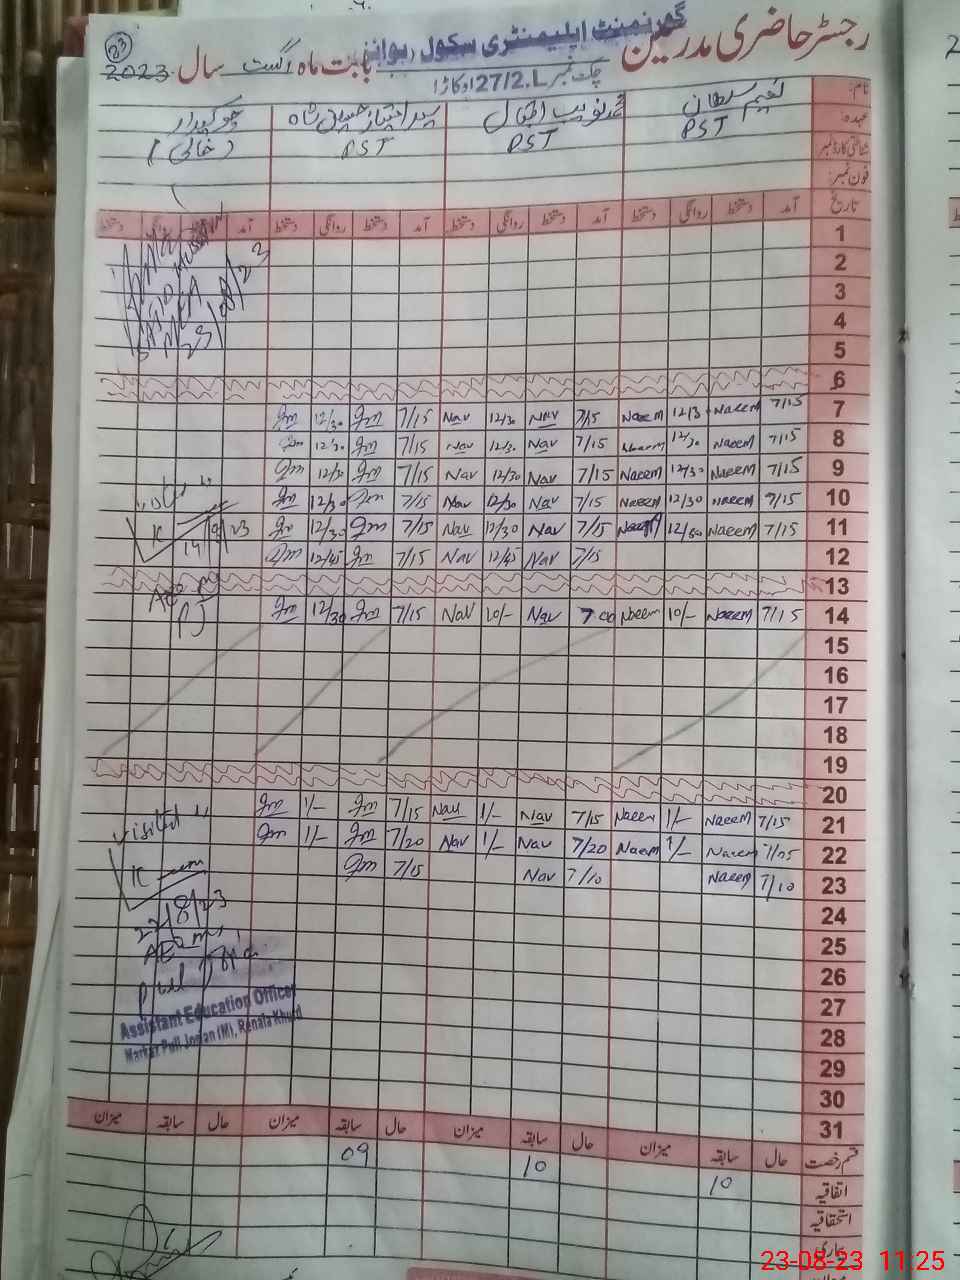 رجسٹر حاضری مدرسین گورنمنٹ ایلیمنٹری سکول (بوائز) بابت ماہ اگست سال 2023
23
چک نمبر 27/2.L اوکاڑا
نام: نعیم سلطان محمد نویب اقبال سید امتیاز حسین شاہ چوکیدار
عہدہ: PST PST PST (خالی)
شناختی کارڈ نمبر
فون نمبر:
تاریخ آمد دستخط روانگی دستخط آمد دستخط روانگی دستخط آمد دستخط روانگی دستخط آمد دستخط
1
2
3
4
5
23/08/23
6
7 7/15 Naeem 12/3 Naeem 7/15 Nav 12/30 Nav 7/15 Im 12/30 Im
8 7/15 Naeem 12/30 Naeem 7/15 Nav 12/30 Nav 7/15 Im 12/30 Im
9 7/15 Naeem 12/30 Naeem 7/15 Nav 12/30 Nav 7/15 Im 12/30 Im
10 7/15 Naeem 12/30 Naeem 7/15 Nav 12/30 Nav 7/15 Im 12/30 Im
11 7/15 Naeem Naeem 7/15 Nav 12/30 Nav 7/15 Im 12/30 Im
12 7/15 Nav 12/45 Nav 7/15 Im 12/45 Im
13
14 7/15 Naeem 10/- Naeem 7 00 Nav 10/- Nav 7/15 Im 12/30 Im
15
16
17
18
19
20
21 7/15 Naeem 1/- Naeem 7/15 Nav 1/- Nav 7/15 Im 1/- Im
22 Naeem 1/- Naeem 7/20 Nav 1/- Nav 7/20 Im 1/- Im
23 7/10 Naeem 7/10 Nav 7/15 Im
24
25
26
27
28
29
30
31
Visited
14/8/23
AEO
PJ
Visited
22/8/23
AEO
Pull
Assistant Education Officer
Markaz Pull Jorian (M), Renala Khurd
قسم رخصت حال سابقہ میزان حال سابقہ میزان حال سابقہ میزان حال سابقہ میزان
اتفاقیہ 10 10 09
استحقاقیہ
بیماری
23-08-23 11:25